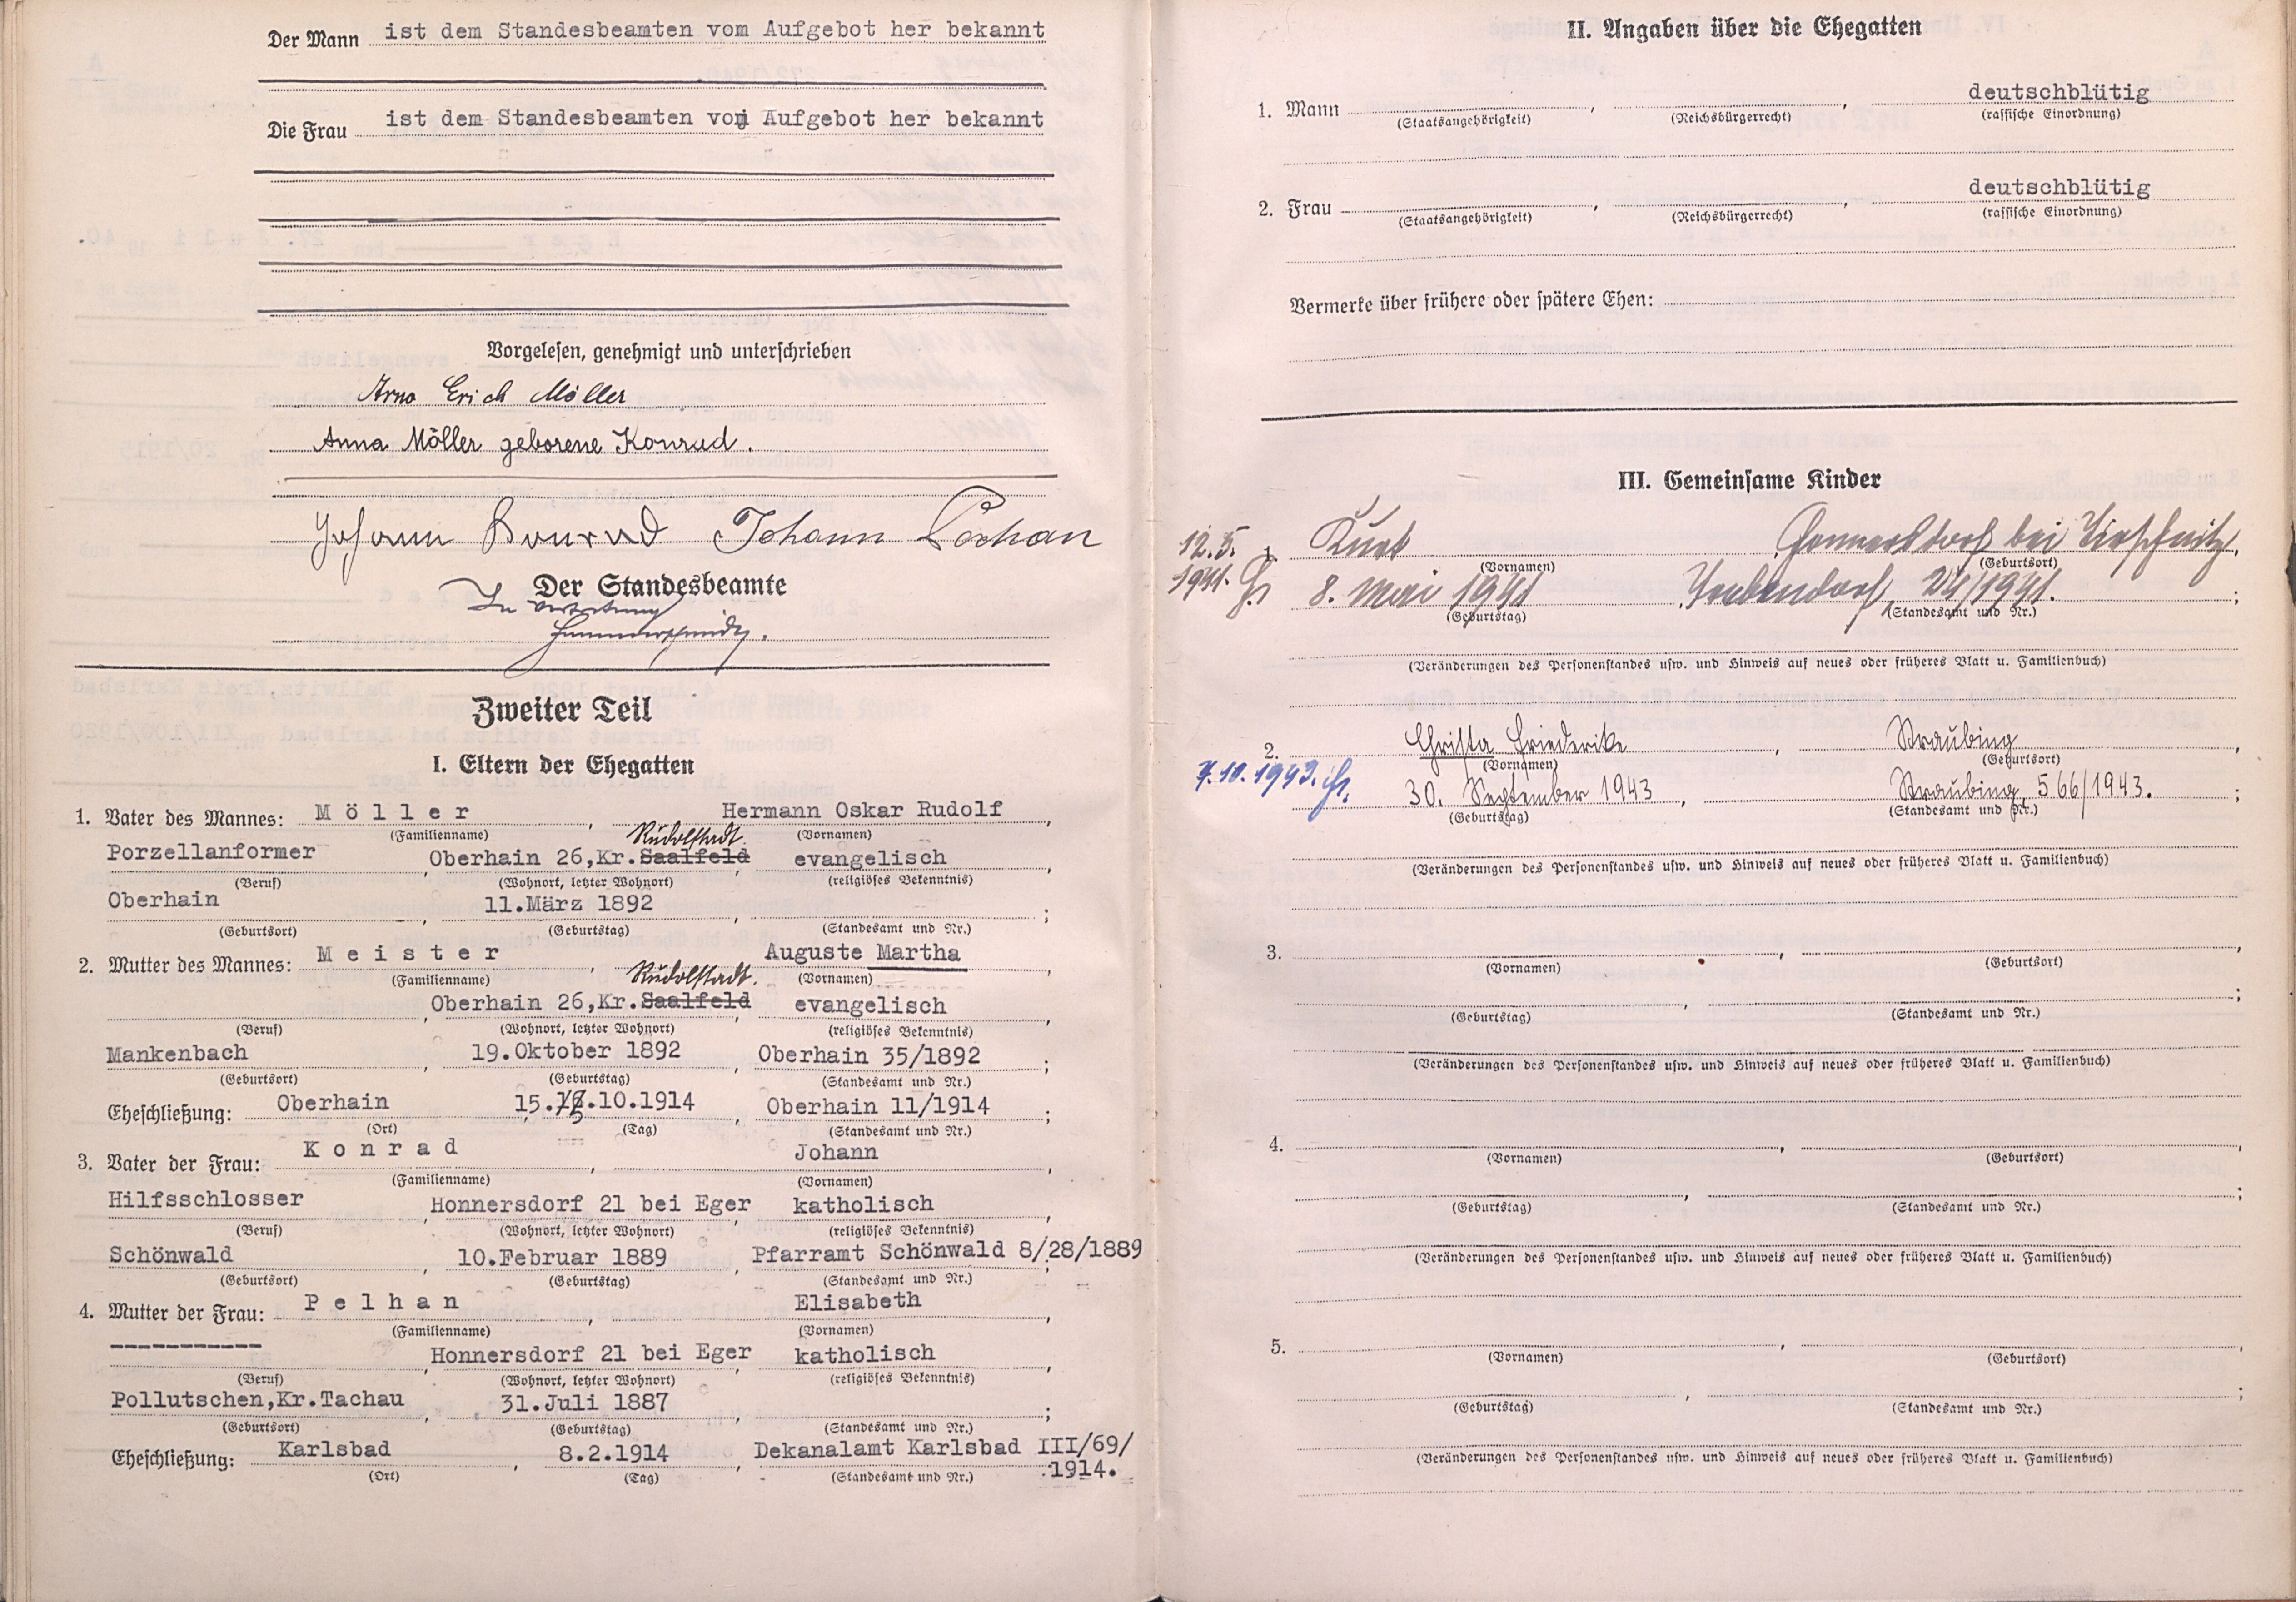 Der Mann ist dem Standesbeamten vom Aufgebot her bekannt
Die Frau ist dem Standesbeamten vom Aufgebot her bekannt
Vorgelesen, genehmigt und unterschrieben
Arno Erich Möller
Anna Möller geborene Konrad.
Johann Konrad Johann
Der Standesbeamte
In Vertretung
Zweiter Teil
I. Eltern der Ehegatten
1. Vater des Mannes: Möller, Hermann Oskar Rudolf,
(Familienname) (Vornamen)
Rudolstadt.
Porzellanformer, Oberhain 26,Kr. Saalfeld, evangelisch,
(Beruf) (Wohnort, letzter Wohnort) (religiöses Bekenntnis)
Oberhain, 11.März 1892, ;
(Geburtsort) (Geburtstag) (Standesamt und Nr.)
2. Mutter des Mannes: Meister, Auguste Martha,
(Familienname) (Vornamen)
Rudolstadt.
, Oberhain 26,Kr. Saalfeld, evangelisch,
(Beruf) (Wohnort, letzter Wohnort) (religiöses Bekenntnis)
Mankenbach, 19.Oktober 1892, Oberhain 35/1892;
(Geburtsort) (Geburtstag) (Standesamt und Nr.)
Eheschließung: Oberhain, 15.10.1914, Oberhain 11/1914;
(Ort) (Tag) (Standesamt und Nr.)
3. Vater der Frau: Konrad, Johann,
(Familienname) (Vornamen)
Hilfsschlosser, Honnersdorf 21 bei Eger, katholisch,
(Beruf) (Wohnort, letzter Wohnort) (religiöses Bekenntnis)
Schönwald, 10.Februar 1889, Pfarramt Schönwald 8/28/1889;
(Geburtsort) (Geburtstag) (Standesamt und Nr.)
4. Mutter der Frau: Pelhan, Elisabeth,
(Familienname) (Vornamen)
-----------, Honnersdorf 21 bei Eger, katholisch,
(Beruf) (Wohnort, letzter Wohnort) (religiöses Bekenntnis)
Pollutschen,Kr.Tachau, 31.Juli 1887, ;
(Geburtsort) (Geburtstag) (Standesamt und Nr.)
Eheschließung: Karlsbad, 8.2.1914, Dekanalamt Karlsbad III/69/
(Ort) (Tag) (Standesamt und Nr.) 1914.
II. Angaben über die Ehegatten
1. Mann , , deutschblütig
(Staatsangehörigkeit) (Reichsbürgerrecht) (rassische Einordnung)
2. Frau , , deutschblütig
(Staatsangehörigkeit) (Reichsbürgerrecht) (rassische Einordnung)
Vermerke über frühere oder spätere Ehen:
III. Gemeinsame Kinder
12.5. 1. Kurt Honnersdorf bei
(Vornamen) (Geburtsort)
1941. 8. Mai 1941 24/1941. ;
(Geburtstag) (Standesamt und Nr.)
(Veränderungen des Personenstandes usw. und Hinweis auf neues oder früheres Blatt u. Familienbuch)
2. Christa Friederike, Straubing,
(Vornamen) (Geburtsort)
7.10.1943. 30. September 1943, Straubing 566/1943. ;
(Geburtstag) (Standesamt und Nr.)
(Veränderungen des Personenstandes usw. und Hinweis auf neues oder früheres Blatt u. Familienbuch)
3. , ,
(Vornamen) (Geburtsort)
, ;
(Geburtstag) (Standesamt und Nr.)
(Veränderungen des Personenstandes usw. und Hinweis auf neues oder früheres Blatt u. Familienbuch)
4. , ,
(Vornamen) (Geburtsort)
, ;
(Geburtstag) (Standesamt und Nr.)
(Veränderungen des Personenstandes usw. und Hinweis auf neues oder früheres Blatt u. Familienbuch)
5. , ,
(Vornamen) (Geburtsort)
, ;
(Geburtstag) (Standesamt und Nr.)
(Veränderungen des Personenstandes usw. und Hinweis auf neues oder früheres Blatt u. Familienbuch)